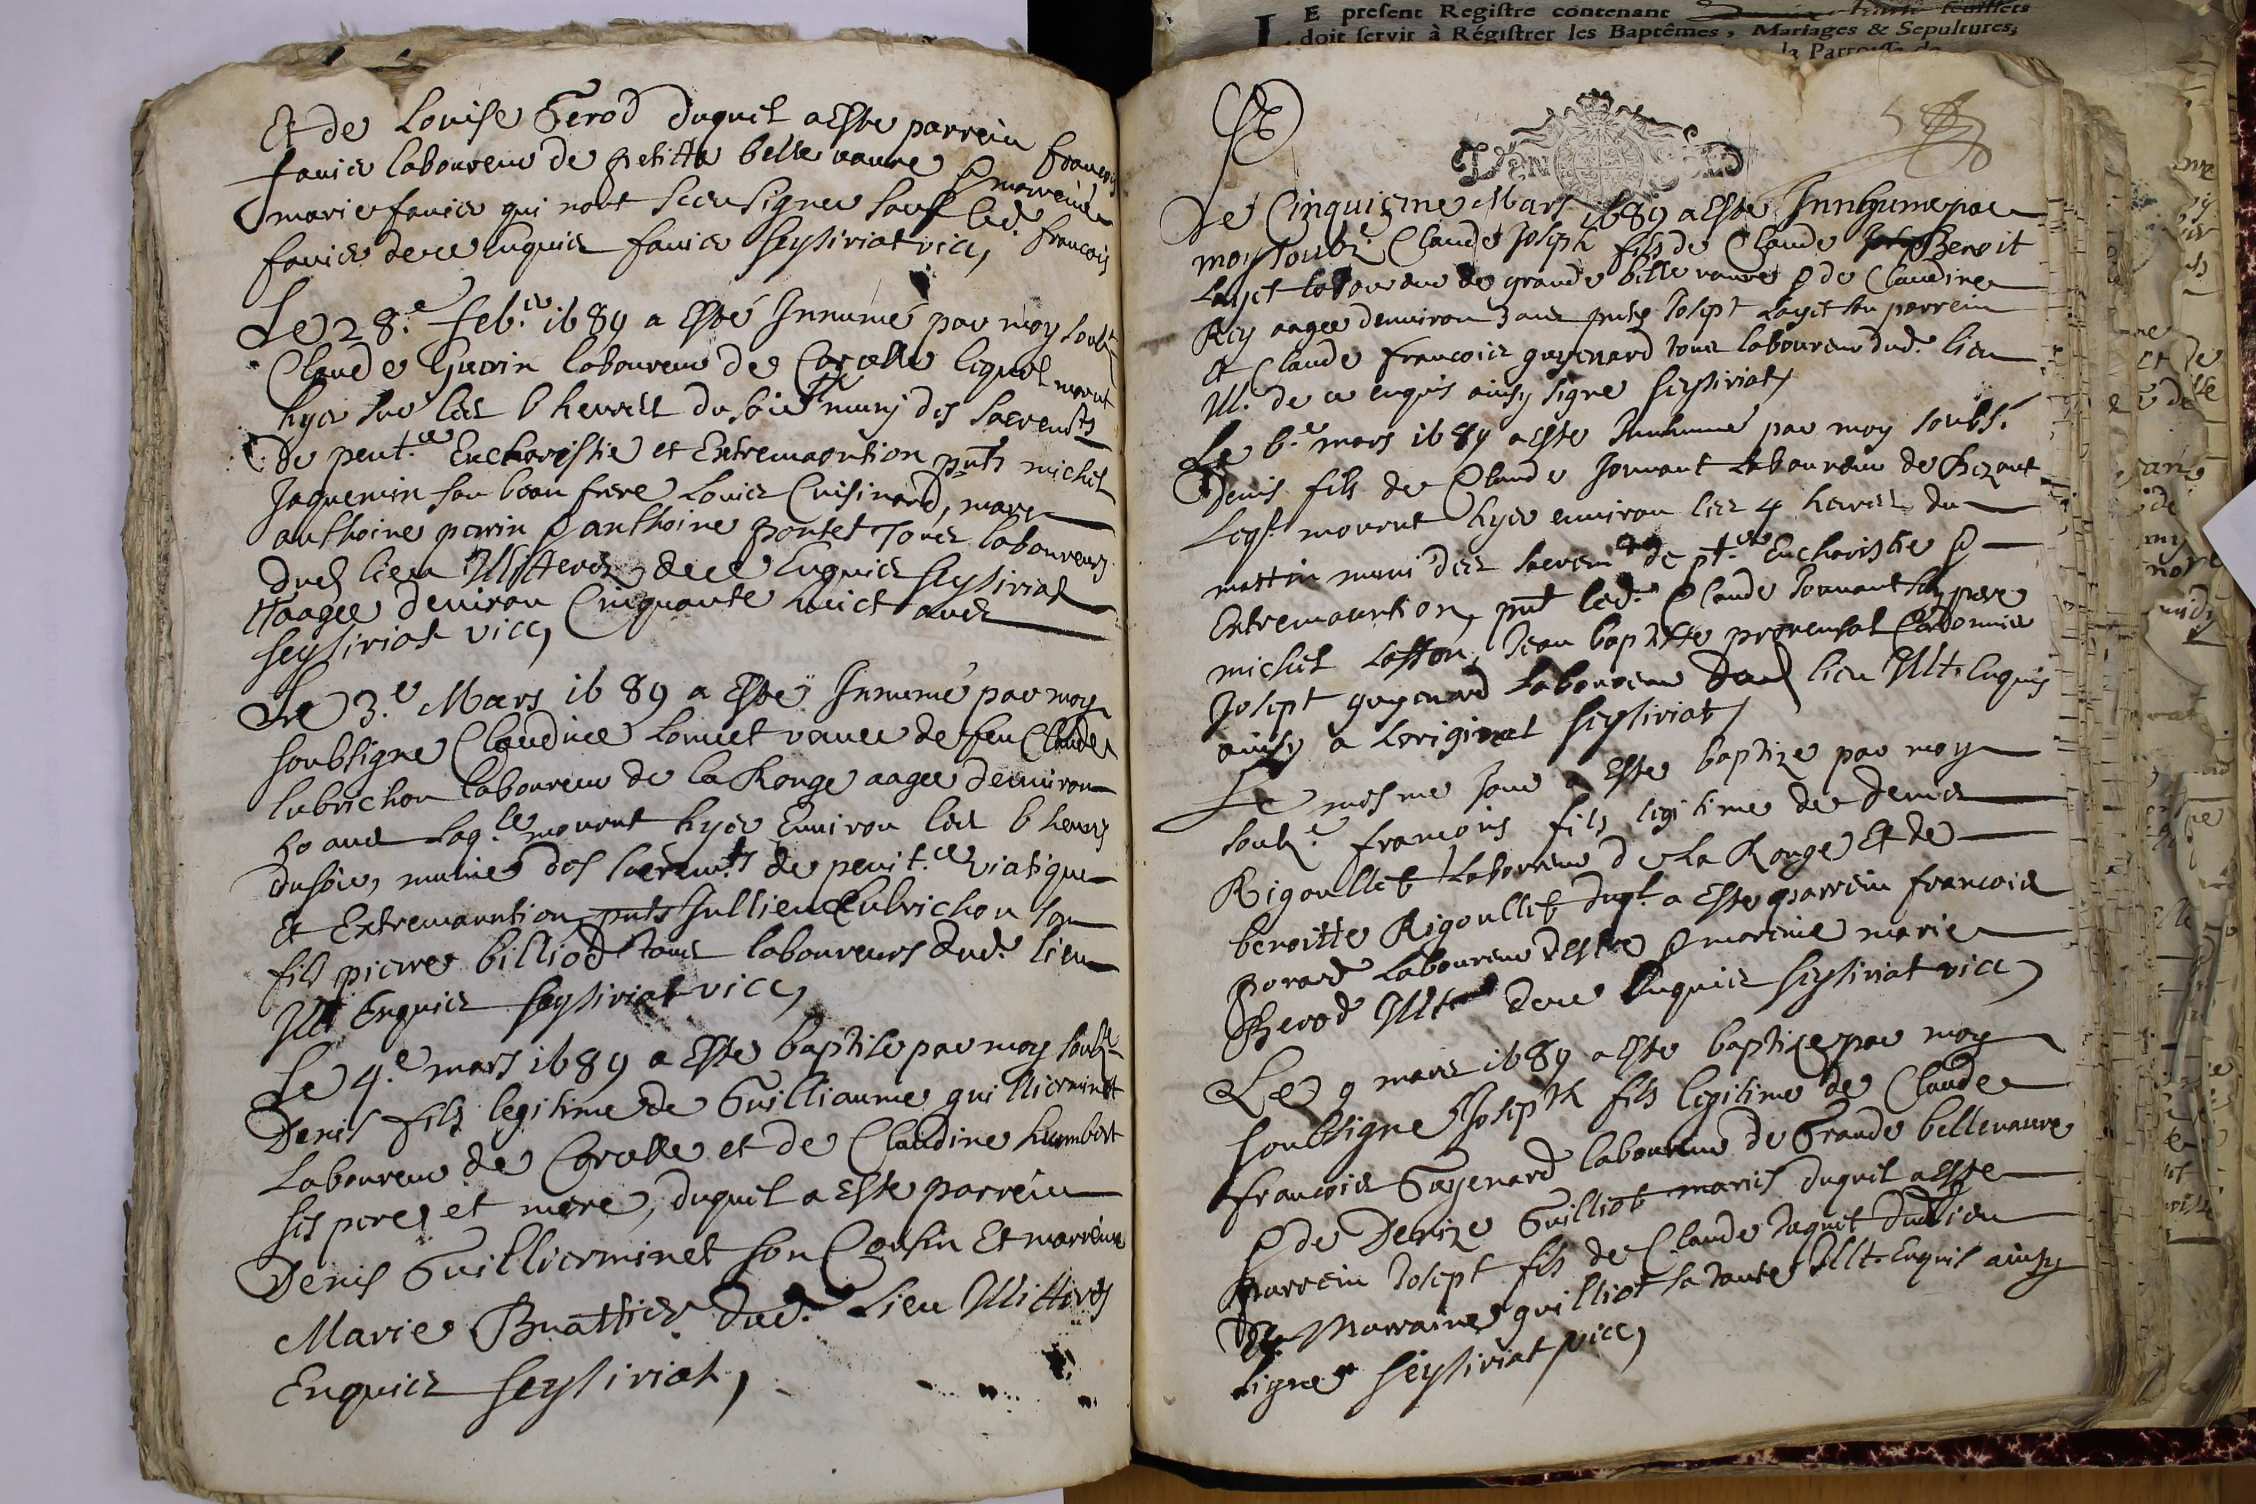 Et de Louise Gerod duquel a Este parrein francois
favier laboureur de petitte bellevaure & marreine
marie favier qui nont sceu signer sauf led. francois
favier de ce Enquis favier Seysiriat vic,
Le 28.e feb.er 1689 a Esté Innumé par moy soubs.
Claude Guerin laboureur de lequel mourut
hyer sur les 6 heures du soir muny des sacremts
de penit.ce Eucharistie et Extremaontion pnts michel
Jaquemin son beau frere Louis Cuisinard, marc
anthoine perrin & anthoine pontet Tous laboureurs
dud lieu Illitteres de ce Enquis Seysiriat
aagee denviron Cinquante huict ans
Seysiriat vicc,
Le 3.e Mars 1689 a Esté Innumé par moy
soubsigne Claudine Cornuet vauve de feu Claude
lubrichon laboureur de la Ronge aagee denviron
ans laq.le mourut hyer Environ les 6 heures
du soir, munie des sacremts de penit.ce viatique
et Extremauntion, pnts Jullien Lubrichon son
fils pierre billiod tous laboureurs dud. lieu
Illt Enquis Seysiriat vicc,
Le 4.e mars 1689 a Este baptise par moy soubs.
Denis fils legitime de Guilliaume guillierminet
Laboureur de et de Claudine humbert
ses pere et mere, duquel a Este parrein
Denis Guillierminet son Cousin Et marreine
Marie Buattier dud. Lieu Illitteres
Enquis Seysiriat,
LE present Registre contenant feuillets
doit servir à Régistrer les Baptêmes, Mariages & Sepultures,
la Parroisse de
Le Cinquieme Mars 1689 a Este Innhume par
moy soubz. Claude Joseph fils de Claude Benoit
Layet laboureur de grande bellevaure & de Claudine
Rey aagee denviron 3 ans pnts Josept Layet son parrein
et Claude francois guyenard tous laboureurs dud. lieu
Ill. de ce enquis ainsy signe Seysiriat
Le 6.e mars 1689 a Este Innhumé par moy soubs.
Denis fils de Claude Jornant Laboureur de
Leq.l mourut hyer environ les 4 heures du
mattin muni des sacrem.ts de pt.ce Eucharistie &
Extremauntion, pnt led. Claude Jornant son pere
michel Jean baptiste provensal Cordonnier
Josept guyenard Laboureur Dud lieu Illt. Enquis
ainsy a Loriginal Seysiriat
Le mesme Jour a Este baptize par moy
soubz. francois fils legitime de denis
Rigoullet Laboureur de La Ronge Et de
benoitte Rigoullet duq.l a Este parrein francois
porard Laboureur & mareine marie
Gerod Illt de ce Enquis Seysiriat vicc,
Le 9 mars 1689 a Este baptize par moy
soubsigne Joseph fils legitime de Claude
francois Guyenard laboureur de Grande bellevaure
& de Denize Guilliot maries duquel a Este
parrein Josept fils de Claude Jaquet dud lieu
Et Marraine guilliot sa tante Illt. Enquis ainsy
signe Seysiriat vicc,